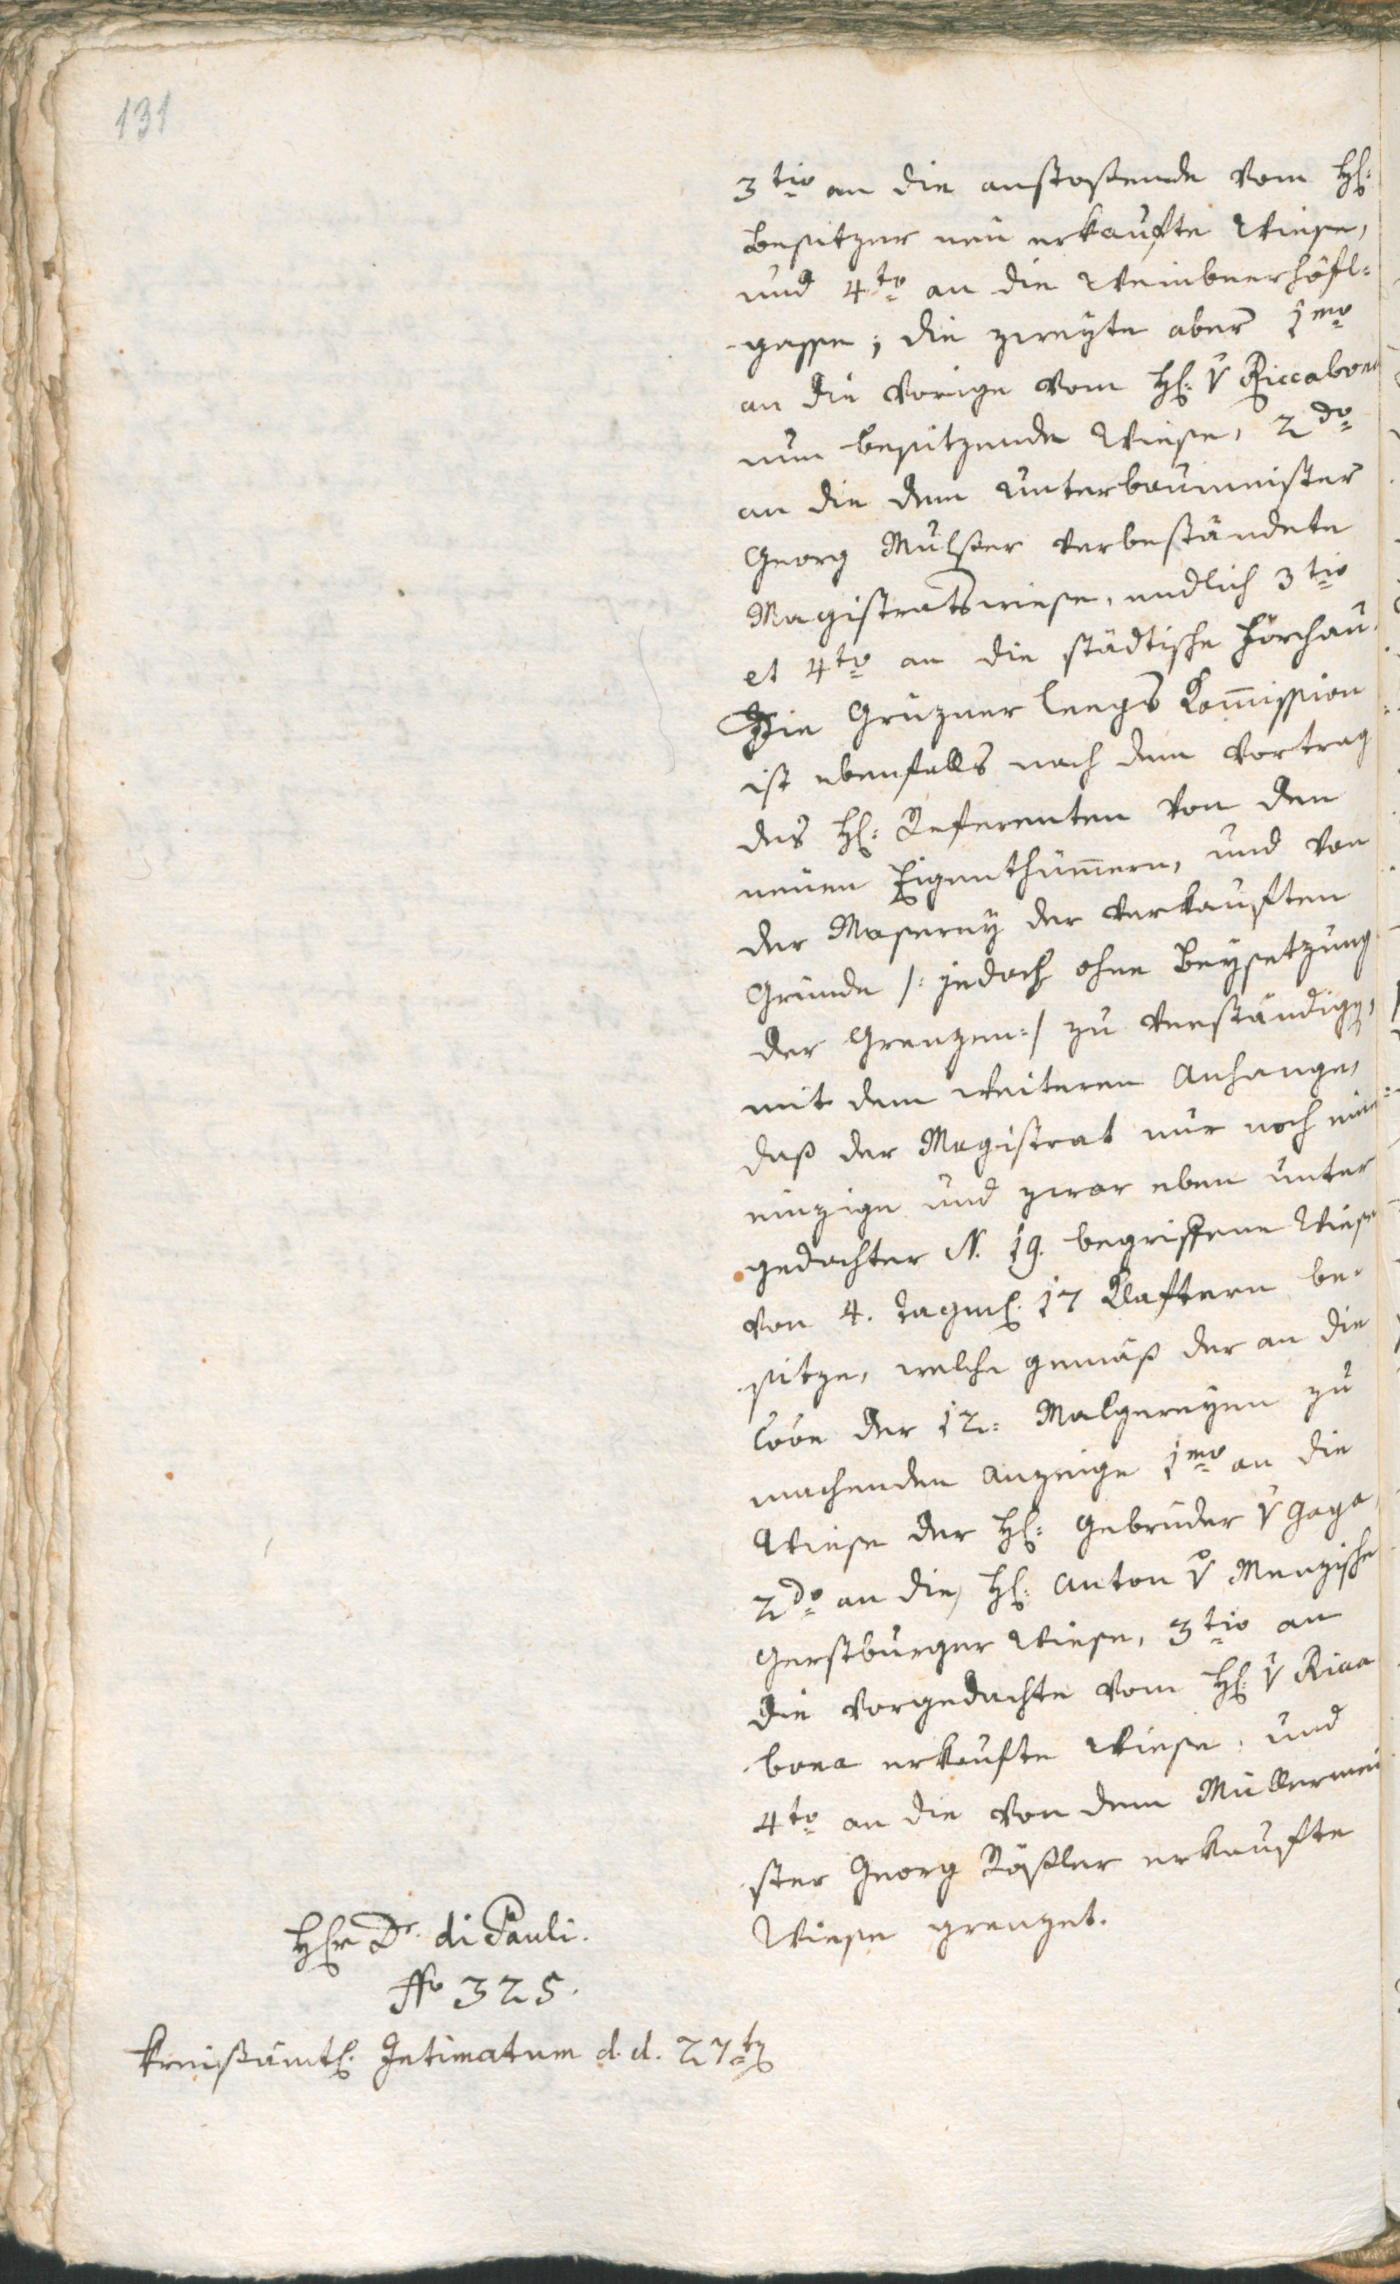 131
3tio an die anstossende vom H:
Besitzer neu erkaufte Wiese,
und 4to an die Weinbnerhöfl=
gasse; die zweyte aber 1mo
an die vorige vom H: v Riccabona
nun besitzende Wiese, 2do
an die dem Unterbaumeister
Georg Mulser verbeständete
Magistratswiese, endlich 3tio
et 4to an die städtische Förchau.
Die Gruzner Leegs Kommission
ist ebenfalls nach dem Vortrag
des H: Referenten von den
neuen Eigenthümern, und von
der Maserey der verkauften
Gründe /: jedoch ohne Beysetzung
der Grenzen :/ zu verständigen,
mit dem weiteren Anhange,
daß der Magistrat nur noch eine
einzige und zwar eben unter
gedachter N. 19. begriffene Wiese
von 4. Tagm: 17 Klaftern be=
sitze, welche gemäß der an die
Löbe der 12: Malgereyen zu
machenden Anzeige 1mo an die
Wiese der H: Gebrüder v Gaga,
2do an die H: Anton v Menzische
Gerstburger Wiese, 3tio an
die vorgedachte vom H: v Ricca
bona erkaufte Wiese, und
4to an die von dem Müllermei
ster Georg Rößler erkaufte
Wiese grenzet.
Hr Dr. di Pauli.
No 325.
Kreisämtl: Intimatum d. d. 27ten